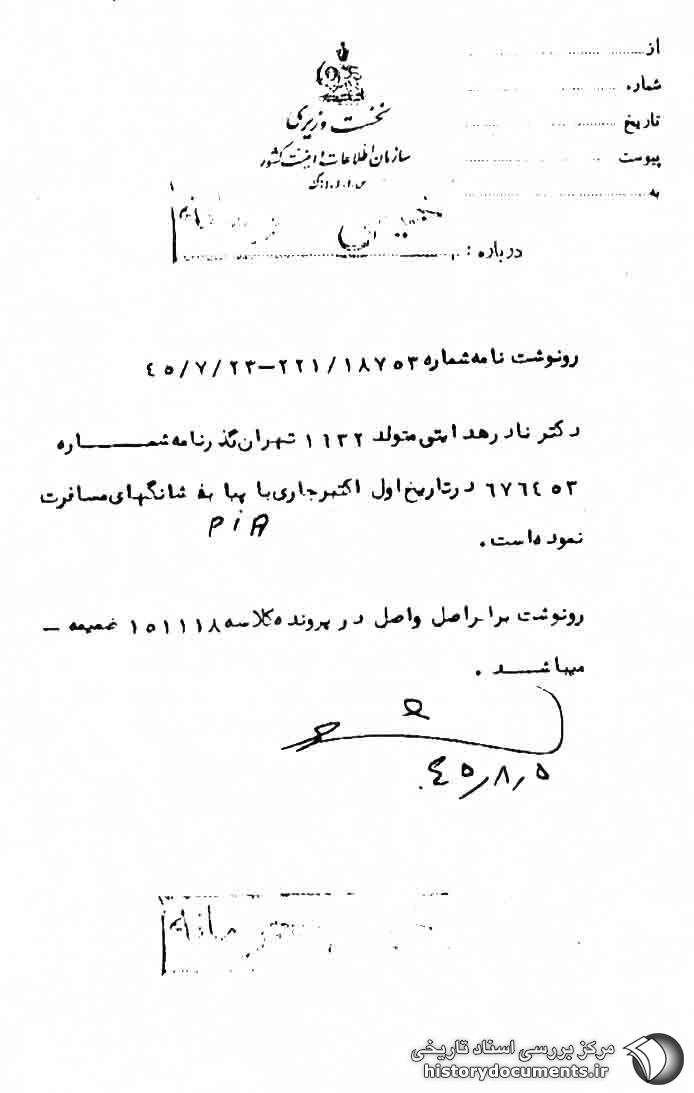 از
شماره
تاریخ
پیوست
به
نخست وزیری
سازمان اطلاعات و امنیت کشور
س.ا.و.ا.ک
درباره :
رونوشت نامه شماره ۱۸۷۵۳/۲۲۱-۴۵/۷/۲۳
دکتر نادر هدایتی متولد ۱۶۳۲ تهران گذرنامه شمـــــاره
۶۷۶۴۵۳ در تاریخ اول اکتبر جاری با پیا به شانگهای مسافرت
PiA
نموده است .
رونوشت برابر اصل واصل در پرونده کلاسه ۱۵۱۱۱۸ ضمیمه –
میباشـــد .
۴۵/۸/۵
مرکز بررسی اسناد تاریخی
historydocuments.ir